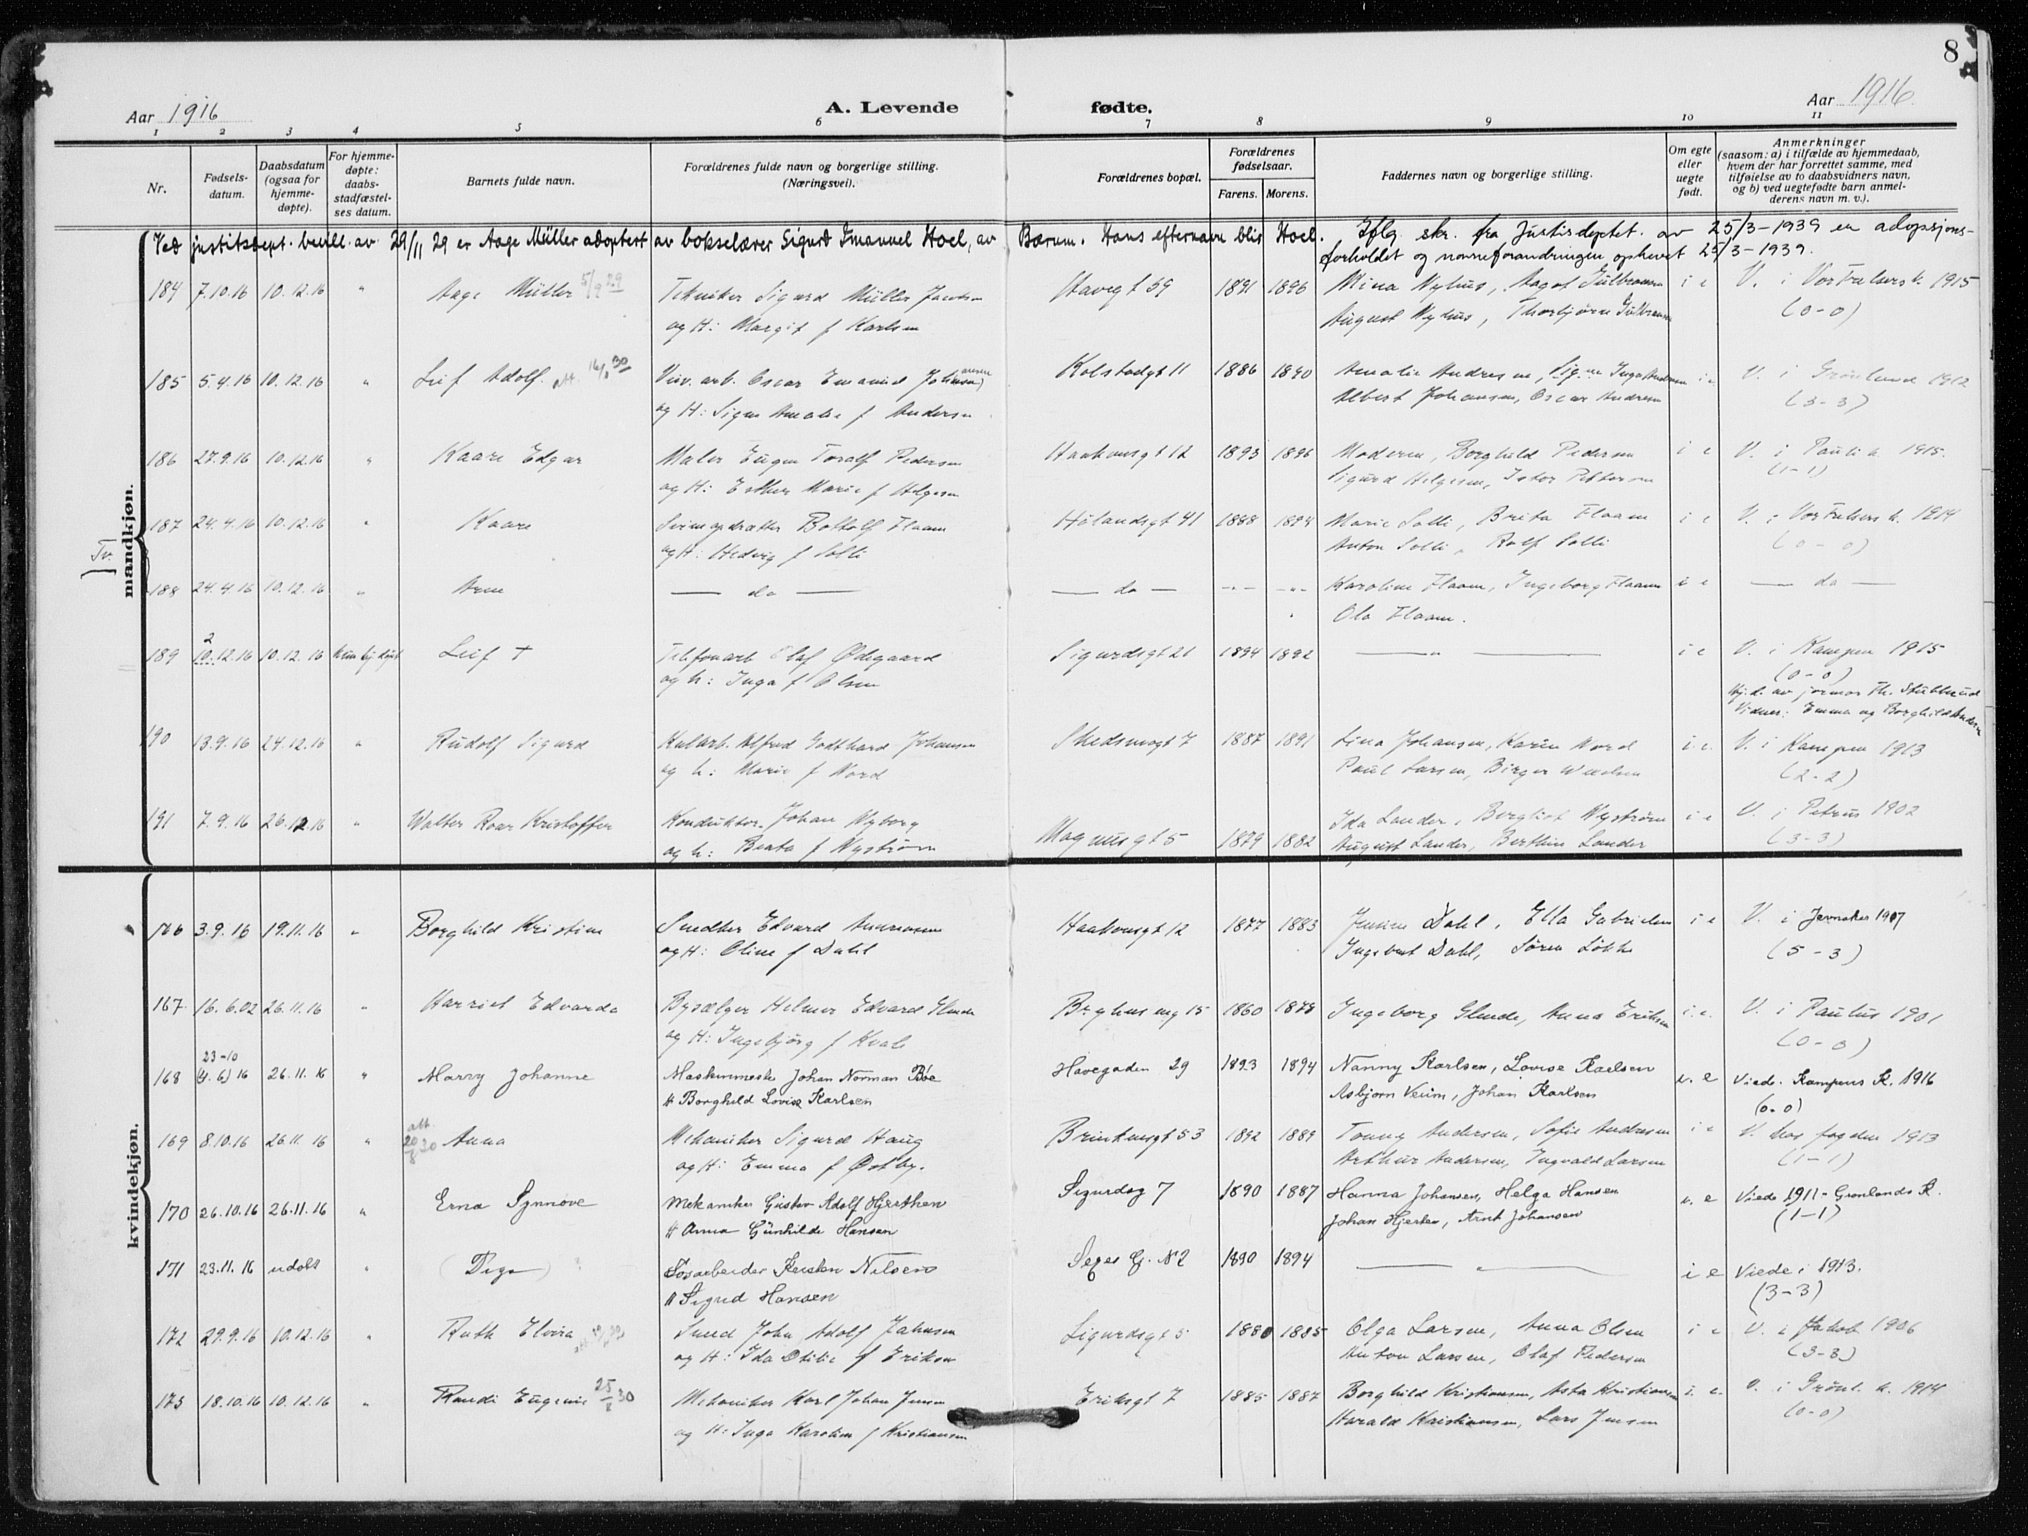 8
Aar 1916 A. Levende fødte. Aar 1916
1 2 3 4 5 6 7 8 9 10 11
Nr. Fødsels-datum. Daabsdatum (ogsaa for hjemme-døpte). For hjemme-døpte: daabs-stadfæstel-ses datum. Barnets fulde navn. Forældrenes fulde navn og borgerlige stilling. (Næringsvei). Forældrenes bopæl. Forældrenes fødselsaar. Farens. Morens. Faddernes navn og borgerlige stilling. Om egte eller uegte født. Anmerkninger (saasom: a) i tilfælde av hjemmedaab, hvem der har forrettet samme, med tilføielse av to daabsvidners navn, og b) ved uegtefødte barn anmel-derens navn m. v.).
Ved justitsdept. bevill. av 29/11 29 er Aage Müller adoptert av bokselærer Sigurd Imanuel Hoel, av Bærum. Hans efternavn blir Hoel. Iflg. skr. fra Justisdeptet. av 25/3-1939 er adopsjons-
forholdet og navneforandringen ophevet 25/3-1939.
mandkjøn.
184 7.10.16 10.12.16 " Aage Müller 5/9 29 Tekniker Sigurd Müller Jacobsen Havegt 59 1891 1896 Mina Nyhus, Aagot Gulbransen i e V. i Vor Frelsers k. 1915
og H: Margit f Karlsen August Nyhus, Thorbjørn Gulbransen (0-0)
185 5.4.16 10.12.16 " Leif Adolf Viv. arb. Oscar Emanuel Johansen Kolstadgt 11 1886 1890 Amalie Andresen, Signe Inga Andersen i e V. i Grønland 1912
og H: Signe Amalie f Andersen Albert Johansen, Oscar Andresen (3-3)
186 27.9.16 10.12.16 " Kaare Edgar Maler Eugen Toralf Pedersen Haakonsgt 12 1893 1896 Moderen, Borghild Pedersen i e V. i Paulus k. 1915.
og H: Esther Marie f Helgesen Sigurd Helgesen, Pettersen (1-1)
Tv.
187 24.4.16 10.12.16 " Kaare Bottolf Flaam Hølandsgt 41 1888 1894 Marie Solli, Brita Flaam i e V. i Vor Frelsers k. 1914
og H: Hedvig f Solli Anton Solli, Rolf Solli (0-0)
188 24.4.16 10.12.16 " Arne — do — — do — -"- -"- Karoline Flaam, Ingeborg Flaam i e — do —
Ola Flaam.
189 10.12.16 2 10.12.16 kun hj.døpt Leif † Telefonarb Olaf Ødegaard Sigurdsgt 21 1894 1892 — " — i e V. i Kampen 1915
og h: Inga f Olsen (0-0)
Hj.d. av jormor Th. Stubberud
Vidner: Emma og Borghild Andersen
190 13.9.16 24.12.16 " Rudolf Sigurd Kularb. Alfred Godthard Johansen Skedsmogt 7 1887 1891 Lina Johansen, Karin Nord i e. V. i Kampen 1913
og h: Marie f Nord Paul Larsen, Birger (2-2)
191 7.9.16 26.12.16 " Walter Roar Kristoffer Konduktør Johan Nyborg Magnusgt 5 1879 1882 Ida Lander, Bergliot Nystrøm i e V. i Petrus 1902
og h: Beata f Nystrøm August Lander, Berthine Lander (3-3)
kvindekjøn.
166 3.9.16 19.11.16 " Borghild Kristine Snedker Edvard Andreassen Haakonsgt 12 1877 1883 Jensine Dahl, Ella Gabrielsen i e V. i Jevnaker 1907
og H: Oline f Dahl Ingebret Dahl, Søren Løkke (5-3)
167 16.6.02 26.11.16 " Harriet Edvarda Bysælger Helmer Edvard Brghusvng 15 1860 1878 Ingeborg Anna Eriksen i e. V. i Paulus 1901
og H: Ingebjørg f Kvale (0-0)
23-10
168 (4.6) 16 26.11.16 " Marry Johanne Maskinmester Johan Norman Bøe Havegaden 29 1893 1894 Nanny Karlsen, Lovise Karlsen u. e Viede. Kampens K. 1916
H Borghild Lovise Karlsen Asbjørn Veum, Johan Karlsen (0-0)
att. 20/8 20
169 8.10.16 26.11.16 " Anna Mekaniker Sigurd Haug Brinkensgt 53 1892 1889 Tonny Andersen, Sofie Andersen i e V. hos fogden 1913
og H: Emma f Østby. Arthur Andersen, Ingvald Larsen (1-1)
170 26.10.16 26.11.16 " Erna Synnøve Mekaniker Gustav Adolf Hjerthen Sigurdsg 7 1890 1887 Hanna Johansen, Helga Hansen u. e Viede 1911- Grønlands K.
H Anna Gunhilde Hansen Johan Hjerten, Arnt Johansen (1-1)
171 23.11.16 udøbt " (Pige) Kristen Nilsen Seges G. N 2 1890 1894 — " — i e Viede i 1913.
H Sigrid Hansen (3-3)
172 29.9.16 10.12.16 " Ruth Elvira Smed John Adolf Jahnsen Sigurdsgt 5 1880 1885 Olga Larsen, Anna Olsen i e V. i Jakob 1906
og H: Ida Otilie f Eriksen Anton Larsen, Olaf Pedersen (3-3)
173 18.10.16 10.12.16 " Randi Eugenie 25/2 30 Mekaniker Karl Johan Jensen Eriksgt 7 1885 1887 Borghild Kristiansen, Asta Kristiansen i. e. V. i Grønl. k. 1914
og H: Inga Karoline f Kristiansen Harald Kristiansen, Lars Jensen (0-0)